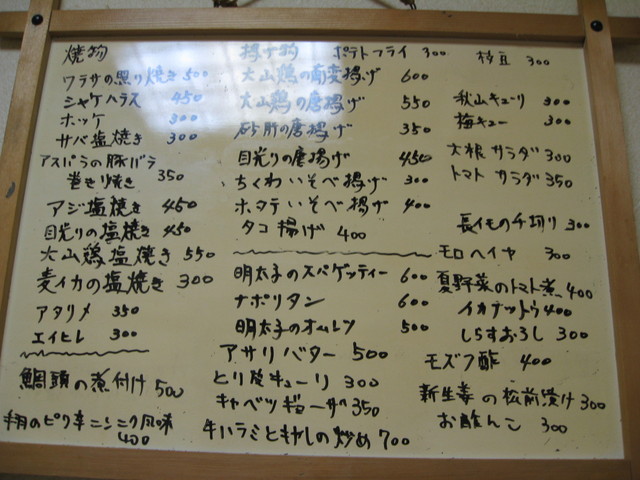 焼物
ワラサの照り焼き 500
シャケハラス 450
ホッケ 300
サバ塩焼き 300
アスパラの豚バラ
巻き焼き 350
アジ塩焼き 450
目光りの塩焼き 450
大山鶏塩焼き 550
麦イカの塩焼き 300
アタリメ 350
エイヒレ 300
鯛頭の煮付け 500
のピリ辛ニンニク風味
400
揚げ物 ポテトフライ 300
大山鶏の南蛮揚げ 600
大山鶏の唐揚げ 550
砂肝の唐揚げ 350
目光りの唐揚げ 450
ちくわいそべ揚げ 300
ホタテいそべ揚げ 400
タコ揚げ 400
明太子のスパゲッティー 600
ナポリタン 600
明太子のオムレツ 500
アサリバター 500
とり皮キューリ 300
キャベツギョーザ 350
牛ハラミともやしの炒め 700
枝豆 300
秋山キューリ 300
梅キュー 300
大根サラダ 300
トマトサラダ 350
長イモの千切り 300
モロヘイヤ 300
夏野菜のトマト煮 400
イカナットウ 400
しらすおろし 300
モズク酢 400
新生姜の松前漬け 300
お酸んこ 300